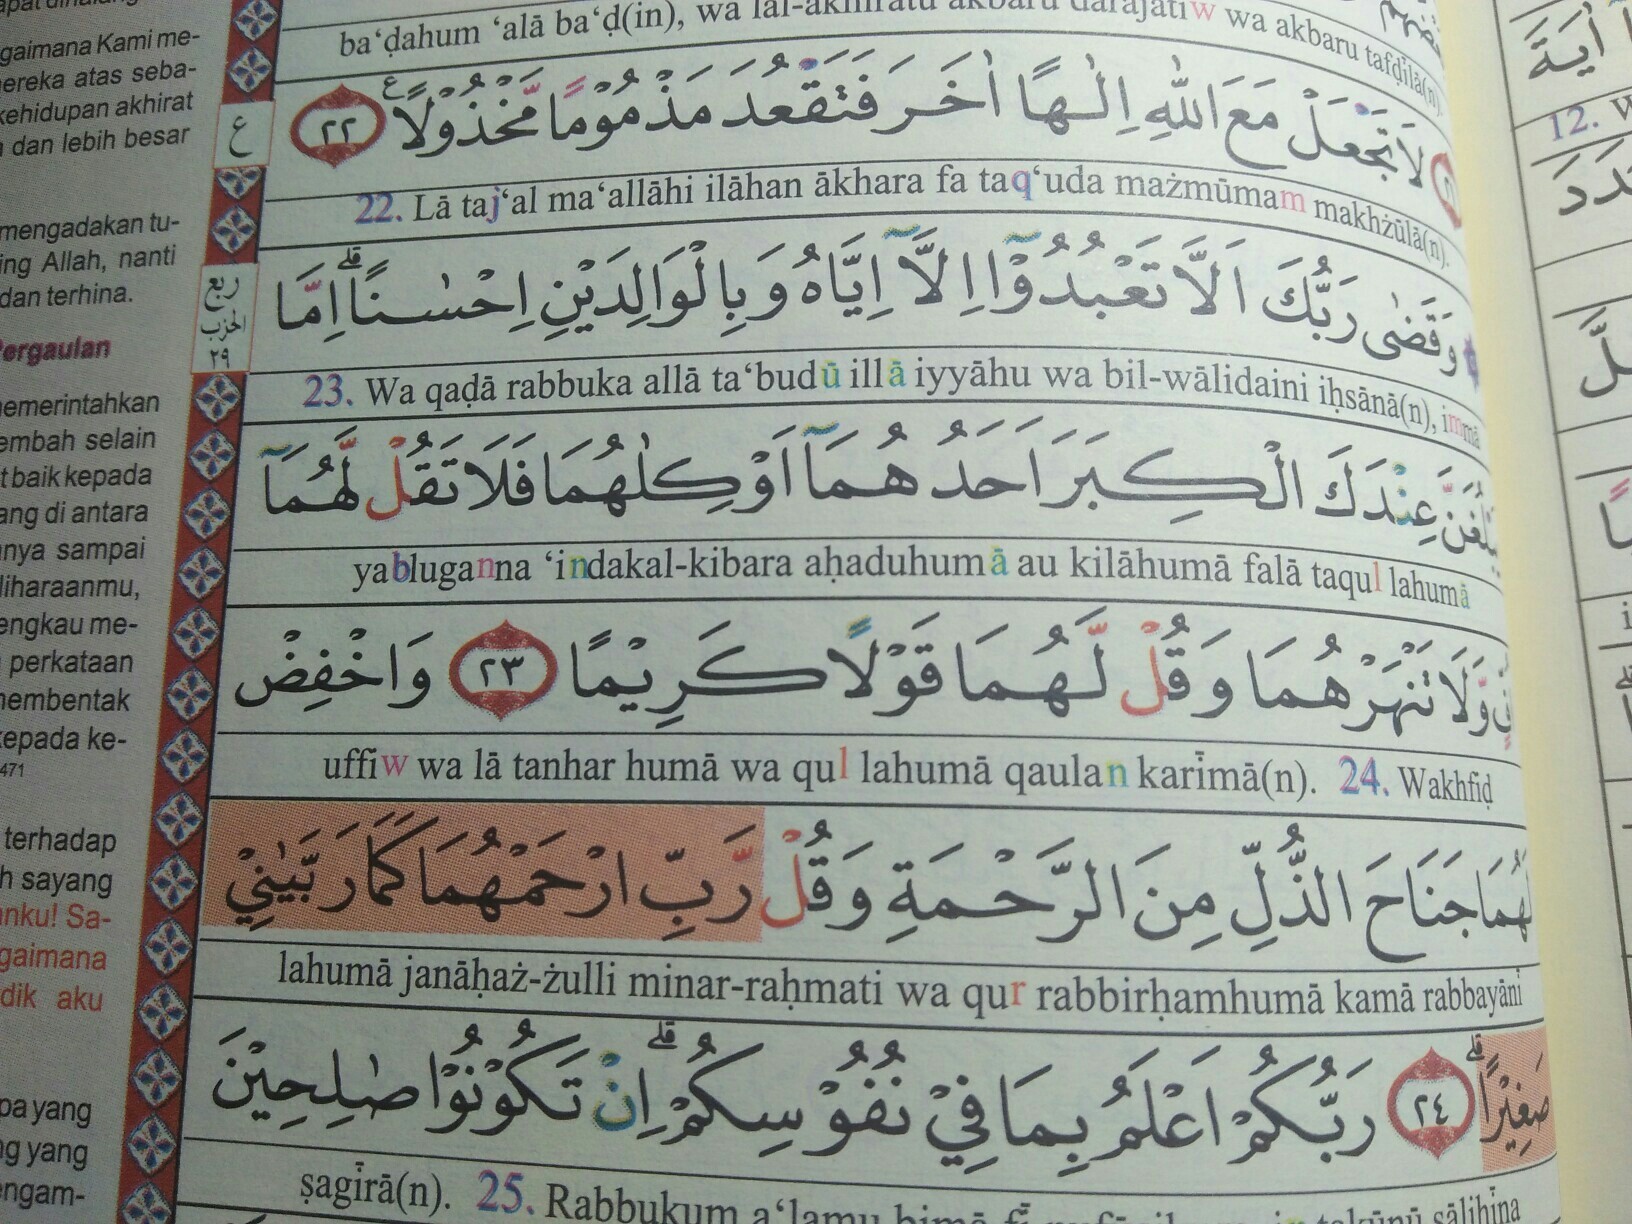 ba‘ḍahum ‘alā ba‘ḍ(in), wa lal-ākhiratu akbaru darajātiw wa akbaru tafḍīlā(n).
لَا تَجْعَلْ مَعَ اللّٰهِ اِلٰهًا اٰخَرَ فَتَقْعُدَ مَذْمُوْمًا مَّخْذُوْلًا ࣖ ٢٢
22. Lā taj‘al ma‘allāhi ilāhan ākhara fa taq‘uda mażmūmam makhżūlā(n).
وَقَضٰى رَبُّكَ اَلَّا تَعْبُدُوْٓا اِلَّآ اِيَّاهُ وَبِالْوَالِدَيْنِ اِحْسٰنًاۗ اِمَّا
23. Wa qaḍā rabbuka allā ta‘budū illā iyyāhu wa bil-wālidaini iḥsānā(n), immā
يَبْلُغَنَّ عِنْدَكَ الْكِبَرَ اَحَدُهُمَآ اَوْ كِلٰهُمَا فَلَا تَقُلْ لَّهُمَآ
yabluganna ‘indakal-kibara aḥaduhumā au kilāhumā falā taqul lahumā
وَّلَا تَنْهَرْهُمَا وَقُلْ لَّهُمَا قَوْلًا كَرِيْمًا ٢٣ وَاخْفِضْ
uffiw wa lā tanhar humā wa qul lahumā qaulan karīmā(n). 24. Wakhfiḍ
لَهُمَا جَنَاحَ الذُّلِّ مِنَ الرَّحْمَةِ وَقُلْ رَّبِّ ارْحَمْهُمَا كَمَا رَبَّيٰنِيْ
lahumā janāḥaż-żulli minar-raḥmati wa qur rabbirḥamhumā kamā rabbayānī
صَغِيْرًاۗ ٢٤ رَبُّكُمْ اَعْلَمُ بِمَا فِيْ نُفُوْسِكُمْۗ اِنْ تَكُوْنُوْا صٰلِحِيْنَ
ṣagīrā(n). 25. Rabbukum a‘lamu bimā fī takūnū ṣāliḥīna
ع
ربع
الحزب
٢٩
gaimana Kami me-
ereka atas seba-
kehidupan akhirat
dan lebih besar
mengadakan tu-
ing Allah, nanti
dan terhina.
Pergaulan
memerintahkan
embah selain
t baik kepada
ang di antara
nya sampai
liharaanmu,
engkau me-
perkataan
membentak
kepada ke-
471
terhadap
h sayang
nku! Sa-
gaimana
dik aku
pa yang
ng yang
engam-
12. W